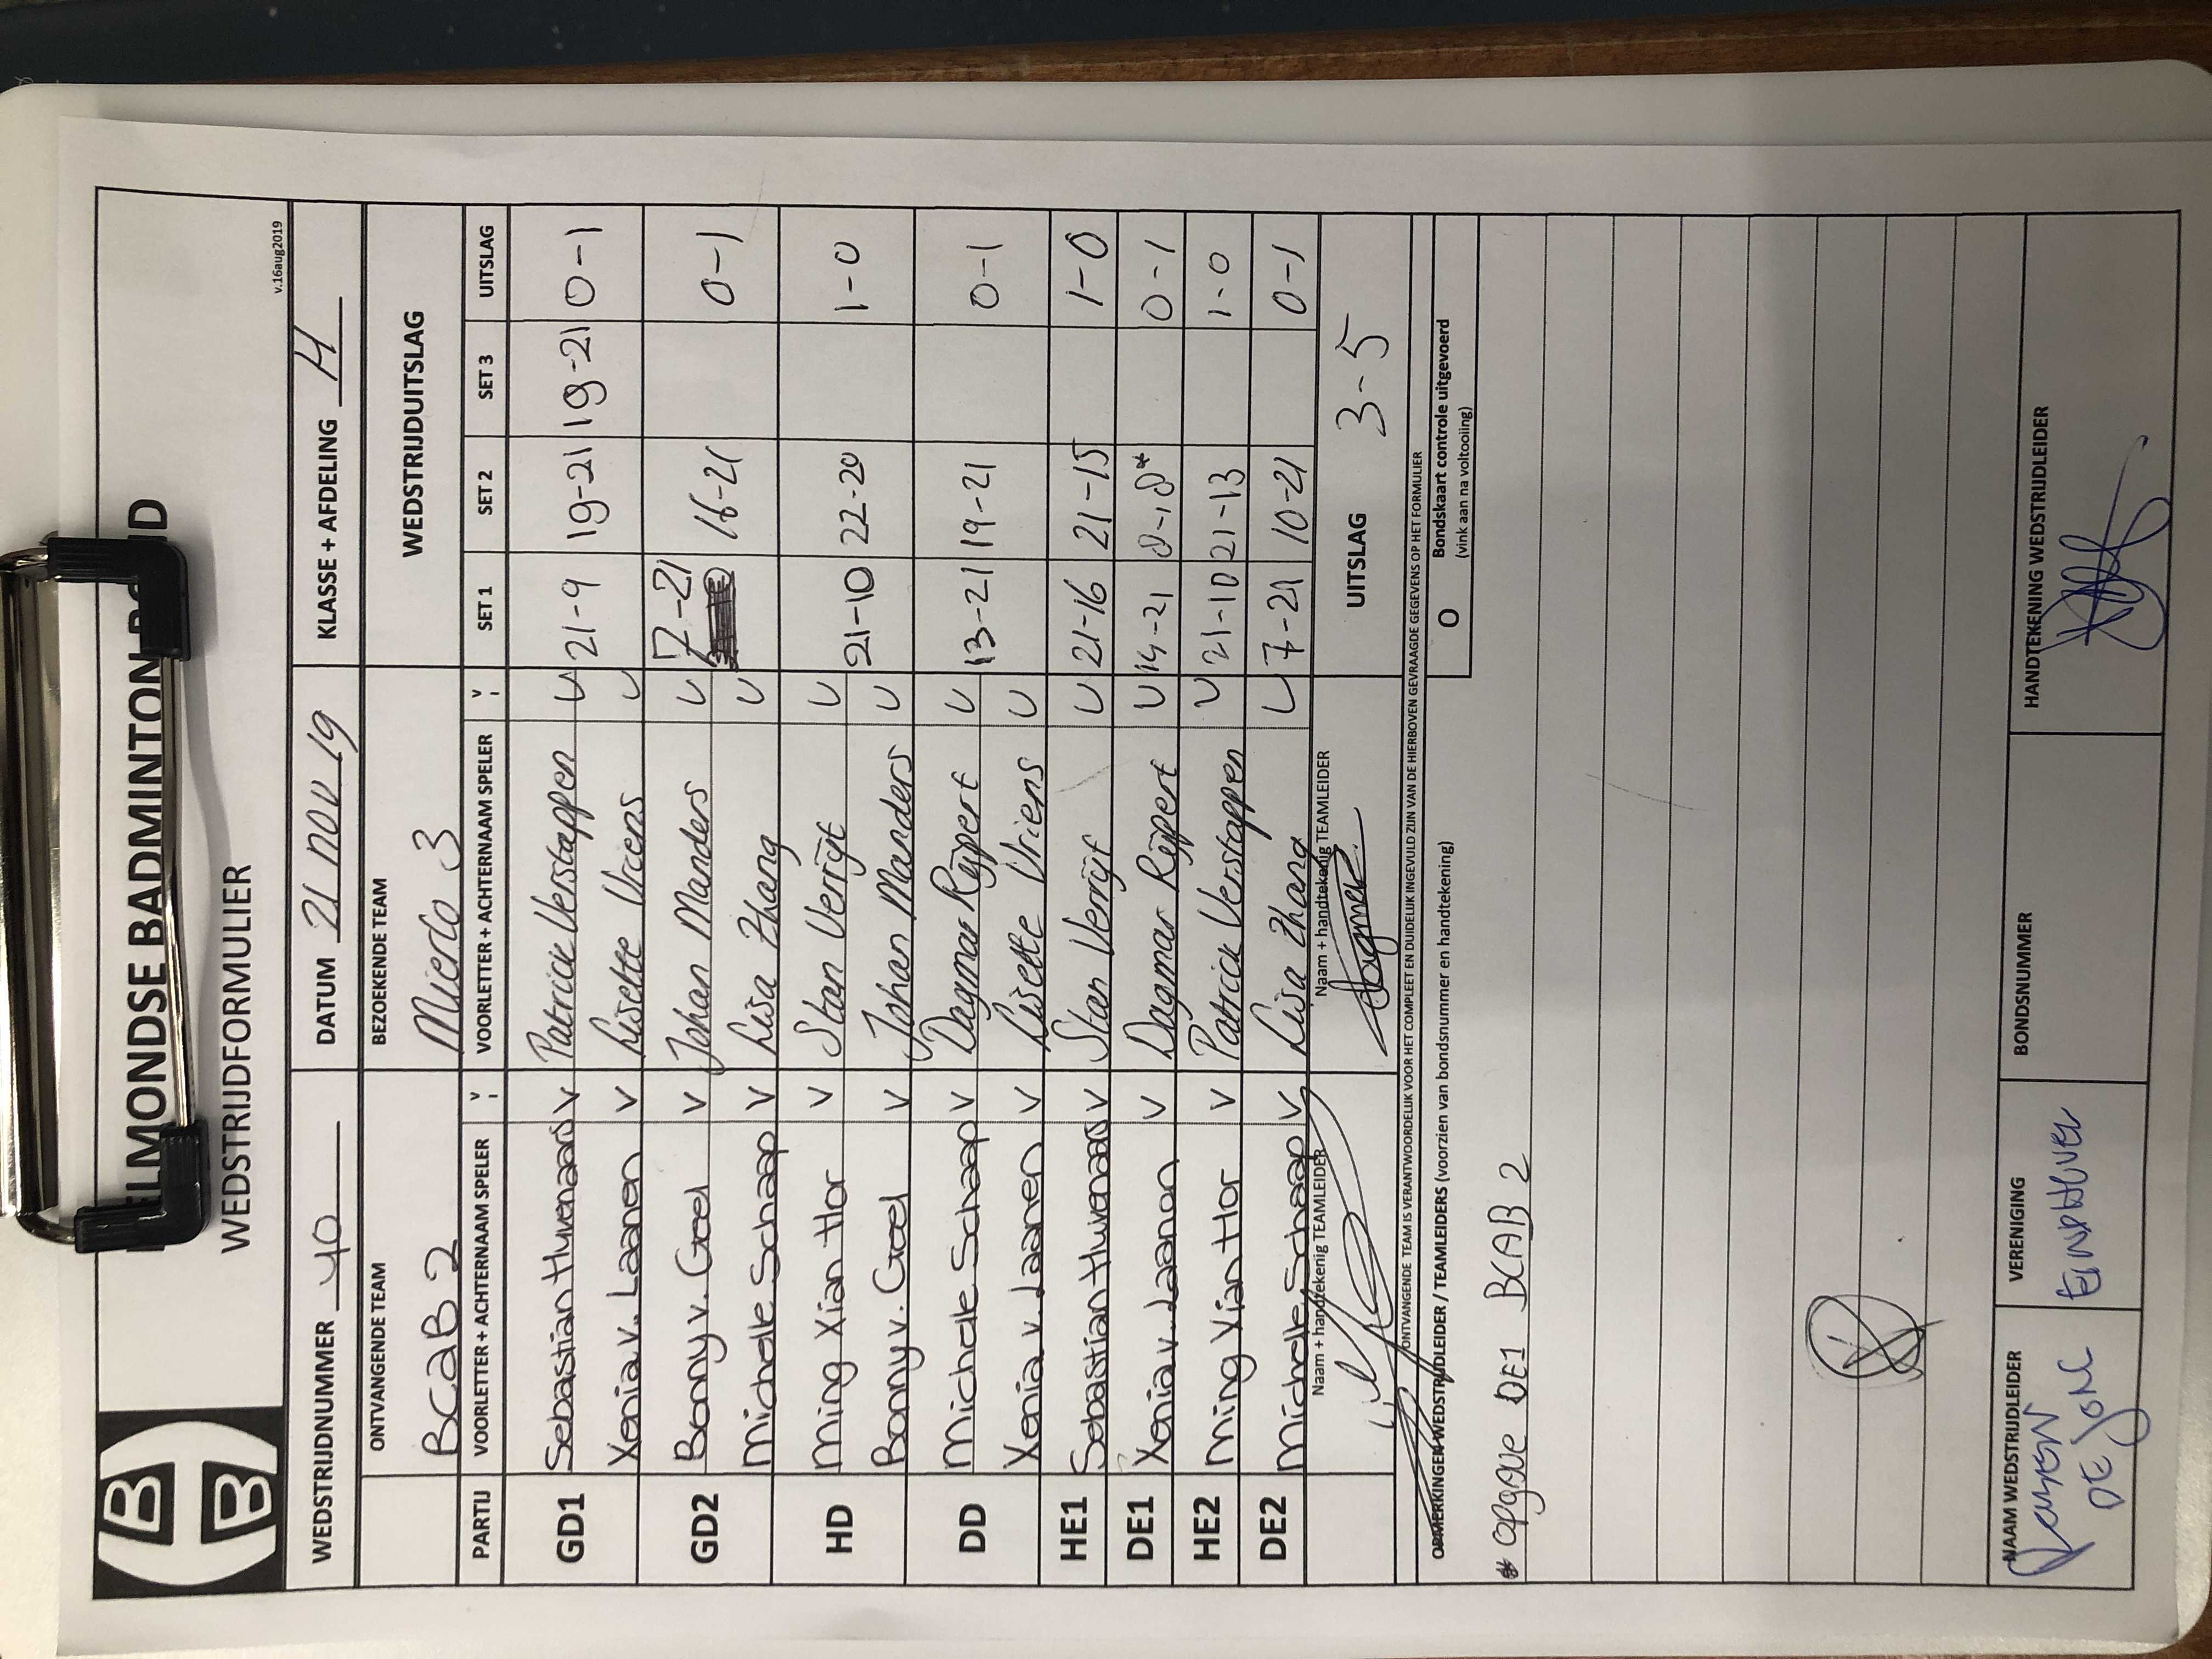 HELMONDSE BADMINTON BOND
WEDSTRIJDFORMULIER
v.16aug2019
WEDSTRIJDNUMMER 40 DATUM 21 nov 19 KLASSE + AFDELING H
ONTVANGENDE TEAM BEZOEKENDE TEAM WEDSTRIJDUITSLAG
BCAB 2 Mierlo 3
PARTIJ VOORLETTER + ACHTERNAAM SPELER V VOORLETTER + ACHTERNAAM SPELER V SET 1 SET 2 SET 3 UITSLAG
GD1 Sebastian Huvenaars V Patrick Verstappen U 21-9 19-21 19-21 0-1
Xenia v. Laanen V Lisette Vriens U
GD2 Bonny v. Goel V Johan Manders U 7-21 16-21 0-1
Michelle Schaap V Lisa Zhang U
HD Ming Xian Hor V Stan Verrijt U 21-10 22-20 1-0
Bonny v. Goel V Johan Manders U
DD Michelle Schaap V Dagmar Rijpert U 13-21 19-21 0-1
Xenia v. Laanen V Lisette Vriens U
HE1 Sebastian Huvenaars V Stan Verrijt U 21-16 21-15 1-0
DE1 Xenia v. Laanen V Dagmar Rijpert U 14-21 8-18* 0-1
HE2 Ming Xian Hor V Patrick Verstappen U 21-10 21-13 1-0
DE2 Michelle Schaap V Lisa Zhang U 7-21 10-21 0-1
Naam + handtekenig TEAMLEIDER Naam + handtekenig TEAMLEIDER UITSLAG 3-5
Dagmar
ONTVANGENDE TEAM IS VERANTWOORDELIJK VOOR HET COMPLEET EN DUIDELIJK INGEVULD ZIJN VAN DE HIERBOVEN GEVRAAGDE GEGEVENS OP HET FORMULIER
OPMERKINGEN WEDSTRIJDLEIDER / TEAMLEIDERS (voorzien van bondsnummer en handtekening) O Bondskaart controle uitgevoerd
(vink aan na voltooiing)
* opgave DE1 BCAB 2
NAAM WEDSTRIJDLEIDER VERENIGING BONDSNUMMER HANDTEKENING WEDSTRIJDLEIDER
DE JONG